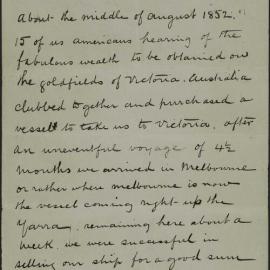 About the middle of august 1852.
15 of us americans hearing of the
fabulous wealth to be obtained on
the goldfields of Victoria. Australia
clubbed together and purchased a
vessel to take us to Victoria. after
an uneventful voyage of 4½
months we arrived in Melbourne
or rather where melbourne is now
the vessel coming right up the
Yarra. remaining here about a
week. we were successful in
selling our ship for a good sum